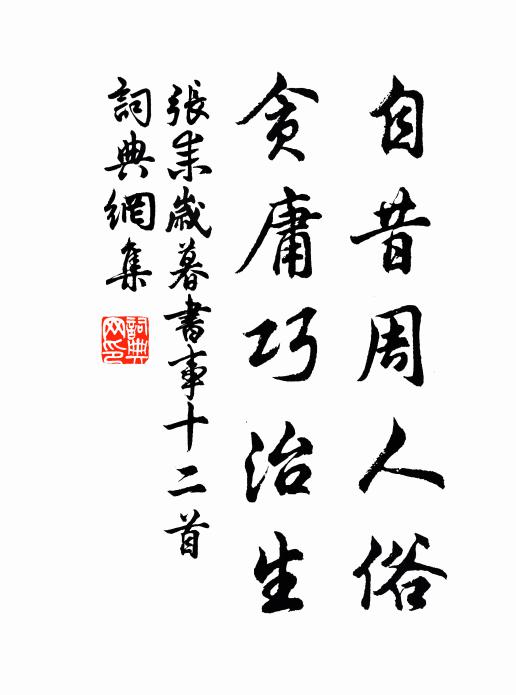 自昔周人俗
貪庸巧治生
張耒歲暮書事十二首
詞典網集
詞典网印